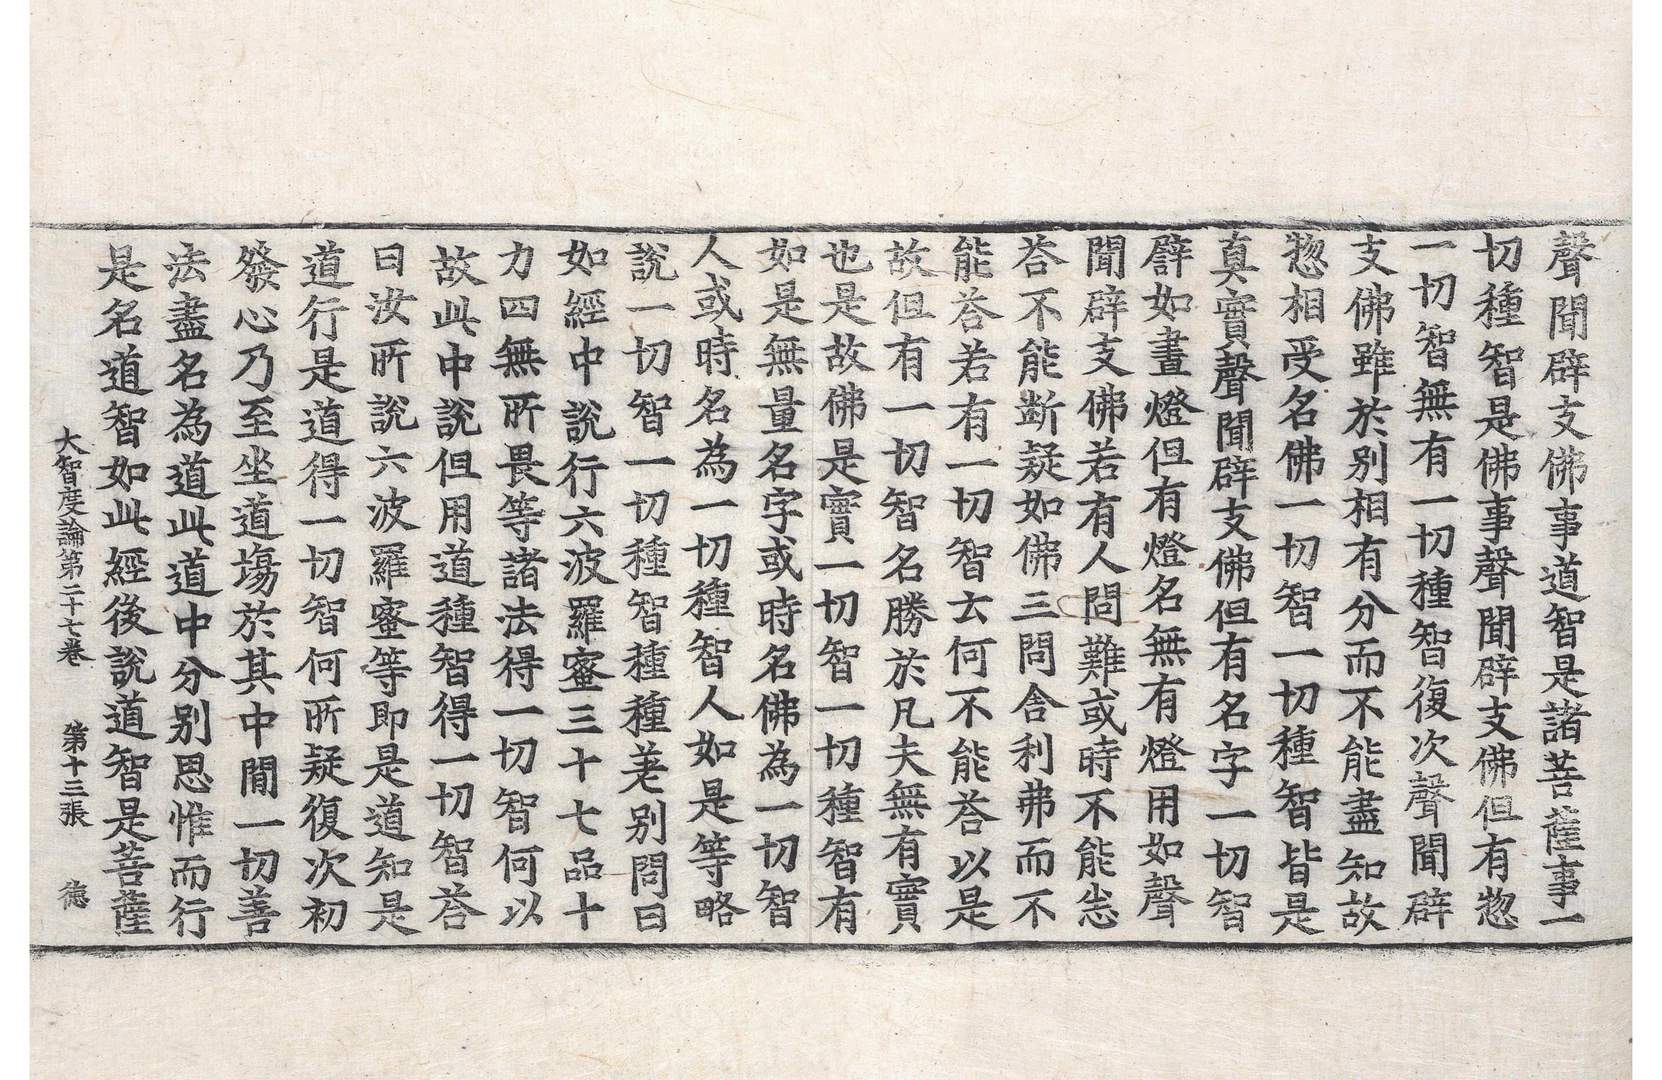 聲聞辟支佛事道智是諸菩薩事一
切種智是佛事聲聞辟支佛但有惣
一切智無有一切種智復次聲聞辟
支佛雖於別相有分而不能盡知故
惣相受名佛一切智一切種智皆是
真實聲聞辟支佛但有名字一切智
譬如畫燈但有燈名無有燈用如聲
聞辟支佛若有人問難或時不能悉
荅不能断疑如佛三問舍利弗而不
能荅若有一切智云何不能荅以是
故但有一切智名勝於凡夫無有實
也是故佛是實一切智一切種智有
如是無量名字或時名佛為一切智
人或時名為一切種智人如是等略
說一切智一切種智種種差別問曰
如經中說行六波羅蜜三十七品十
力四無所畏等諸法得一切智何以
故此中說但用道種智得一切智荅
曰汝所說六波羅蜜等即是道知是
道行是道得一切智何所疑復次初
發心乃至坐道場於其中間一切善
法盡名為道此道中分別思惟而行
是名道智如此經後說道智是菩薩
大智度論第二十七卷 第十三張 德